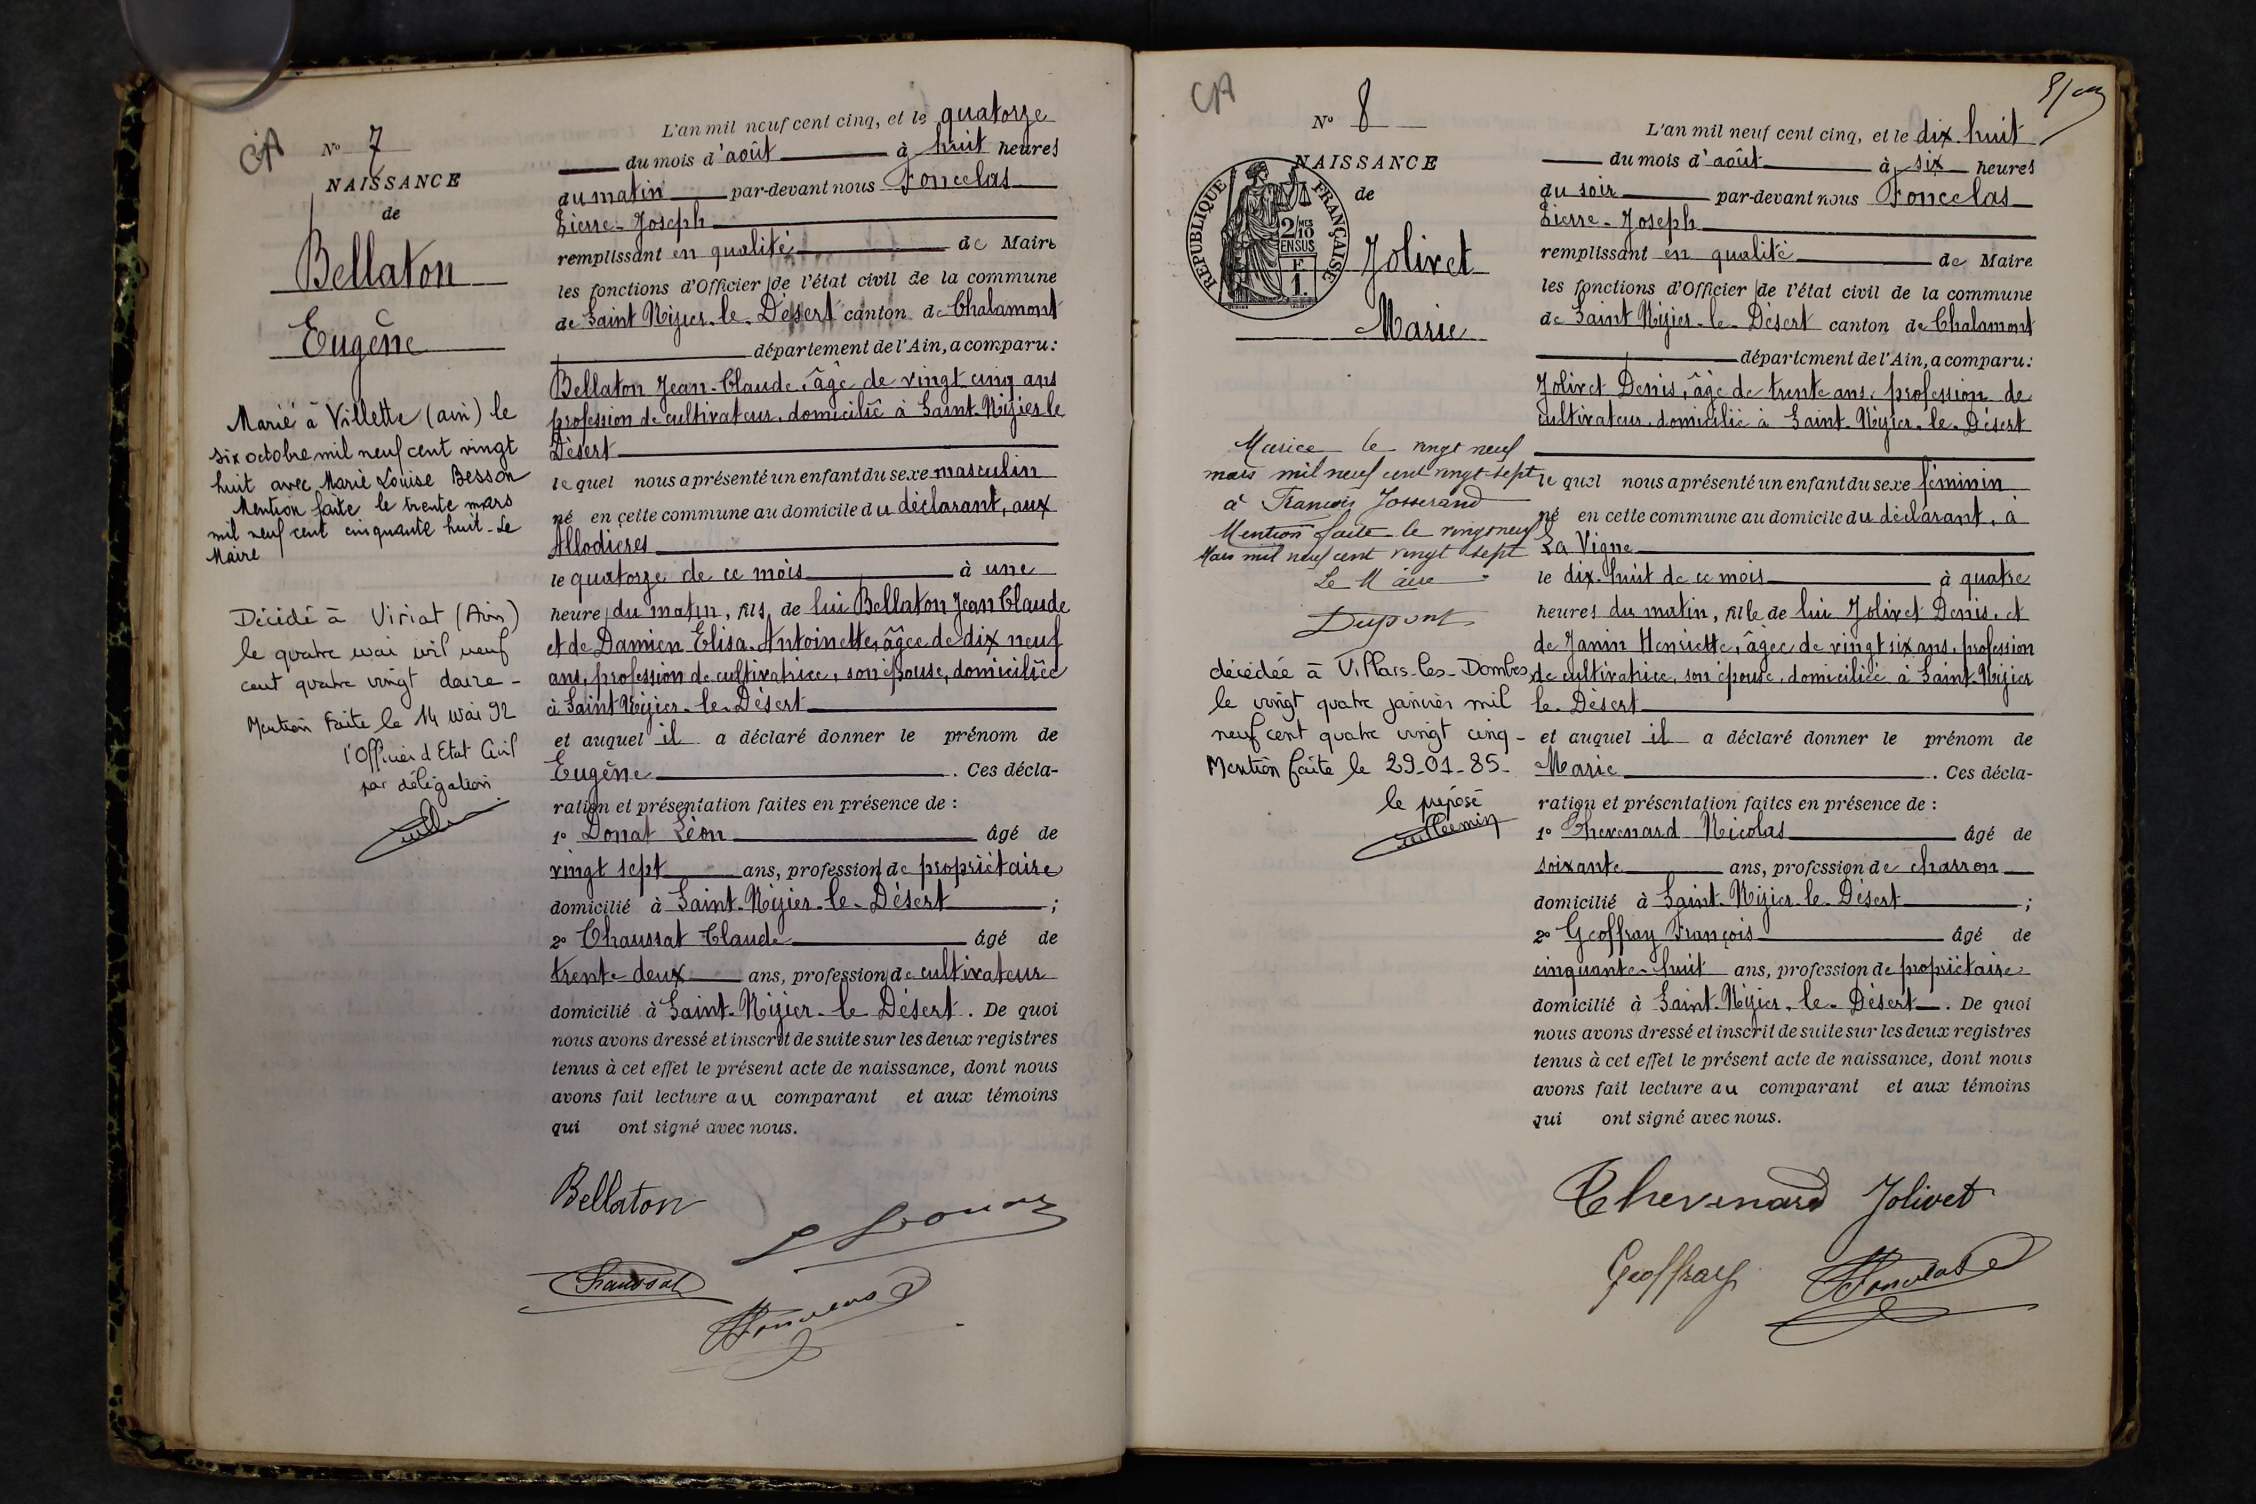 CA
N° 7
NAISSANCE
de
Bellaton
Eugène
Marié à Villette (ain) le
six octobre mil neuf cent vingt
huit avec Marie Louise Besson
Mention faite le trente mars
mil neuf cent cinquante huit - Le
Maire
Décédé à Viriat (Ain)
le quatre mai mil neuf
cent quatre vingt douze -
Mention faite le 14 mai 92
l'Officier d'Etat Civil
par délégation
L'an mil neuf cent cinq, et le quatorze
du mois d'août à huit heures
du matin par-devant nous Foncelas
Pierre-Joseph
remplissant en qualité de Maire
les fonctions d'Officier de l'état civil de la commune
de Saint Nizier-le-Désert canton de Chalamont
département de l'Ain, a comparu:
Bellaton Jean-Claude, âgé de vingt cinq ans
profession de cultivateur, domicilié à Saint-Nizier le
Désert
lequel nous a présenté un enfant du sexe masculin
né en cette commune au domicile du déclarant, aux
Allodieres
le quatorze de ce mois à une
heure du matin, fils de lui Bellaton Jean Claude
et de Damien Elisa-Antoinette, âgée de dix neuf
ans, profession de cultivatrice, son épouse, domiciliée
à Saint Nizier-le-Désert
et auquel il a déclaré donner le prénom de
Eugène . Ces décla-
ration et présentation faites en présence de :
1° Donat Léon âgé de
vingt sept ans, profession de propriétaire
domicilié à Saint-Nizier-le-Désert ;
2° Chaussat Claude âgé de
trente deux ans, profession de cultivateur
domicilié à Saint-Nizier-le Désert. De quoi
nous avons dressé et inscrit de suite sur les deux registres
tenus à cet effet le présent acte de naissance, dont nous
avons fait lecture au comparant et aux témoins
qui ont signé avec nous.
Bellaton
L Donat
Chaussat
Foncelas
CA
N° 8
NAISSANCE
de
RÉPUBLIQUE FRANÇAISE
2/10 EN SUS
F
1.
Jolivet
Marie
Mariée le vingt neuf
mars mil neuf cent vingt-sept
à François Josserand
Mention faite le vingt neuf
Mars mil neuf cent vingt sept
Le Maire
Dupont
décédée à Villars-les-Dombes
le vingt quatre janvier mil
neuf cent quatre vingt cinq -
Mention faite le 29-01-85-
le préposé
Guillemin
L'an mil neuf cent cinq, et le dix-huit
du mois d'août à six heures
du soir par-devant nous Foncelas
Pierre-Joseph
remplissant en qualité de Maire
les fonctions d'Officier de l'état civil de la commune
de Saint Nizier-le-Désert canton de Chalamont
département de l'Ain, a comparu:
Jolivet Denis, âgé de trente ans, profession de
cultivateur, domicilié à Saint-Nizier-le-Désert
lequel nous a présenté un enfant du sexe féminin
né en cette commune au domicile du déclarant, à
La Vigne
le dix-huit de ce mois à quatre
heures du matin, fille de lui Jolivet Denis, et
de Janin Henriette, âgée de vingt six ans, profession
de cultivatrice, son épouse, domiciliée à Saint-Nizier
le-Désert
et auquel il a déclaré donner le prénom de
Marie . Ces décla-
ration et présentation faites en présence de :
1° Thevenard Nicolas âgé de
soixante ans, profession de charron
domicilié à Saint-Nizier-le-Désert ;
2° Geoffray François âgé de
cinquante-huit ans, profession de propriétaire
domicilié à Saint-Nizier-le-Désert. De quoi
nous avons dressé et inscrit de suite sur les deux registres
tenus à cet effet le présent acte de naissance, dont nous
avons fait lecture au comparant et aux témoins
qui ont signé avec nous.
Thevenard Jolivet
Geoffray Foncelas